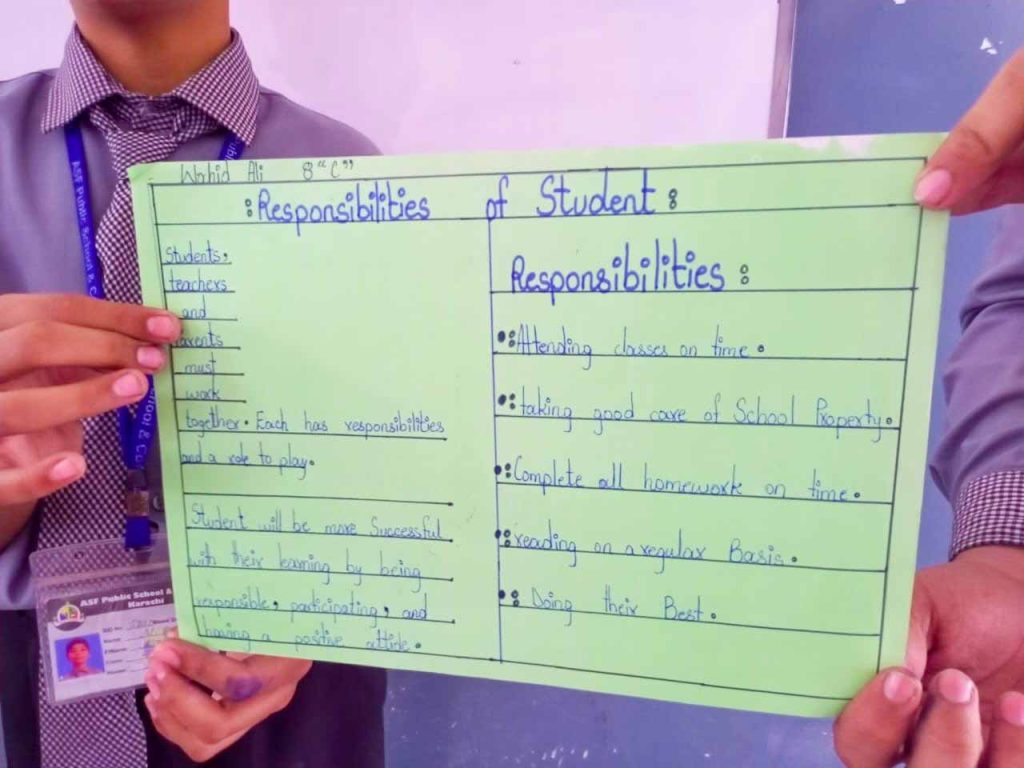 Wahid Ali 8 "C"
:Responsibilities of Student:
Students,
teachers
and
arents
must
work
together. Each has responsibilities
and a role to play.
Student will be more Successful
with their learning by being
responsible, participating, and
having a positive attide.
Responsibilities :
Attending classes on time.
taking good care of School Property.
Complete all homework on time.
reading on a regular Basis.
Doing their Best.
ASF Public School & C
ASF Public School &
Karachi